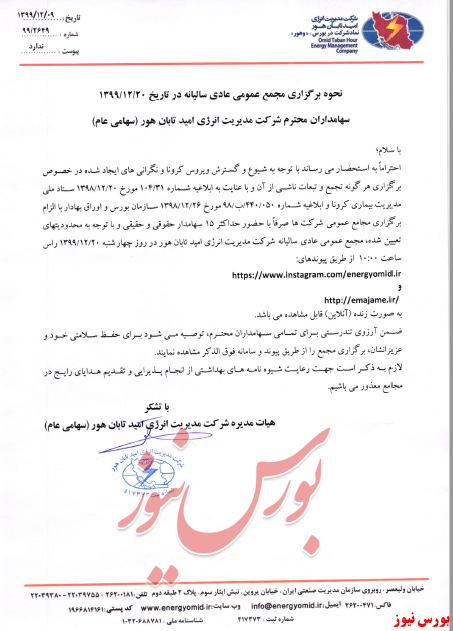 شرکت مدیریت انرژی
امید تابان هور
نماد شرکت در بورس: «وهور»
Omid Taban Hour
Energy Management
Company
تاریخ: ۱۳۹۹/۱۲/۰۹
شماره: ۹۹/۲۶۴۹
پیوست: ندارد
نحوه برگزاری مجمع عمومی عادی سالیانه در تاریخ ۱۳۹۹/۱۲/۲۰
سهامداران محترم شرکت مدیریت انرژی امید تابان هور (سهامی عام)
با سلام؛
احتراماً به استحضار می رساند با توجه به شیوع و گسترش ویروس کرونا و نگرانی های ایجاد شده در خصوص
برگزاری هر گونه تجمع و تبعات ناشی از آن و با عنایت به ابلاغیه شماره ۱۰۴/۳۱ مورخ ۱۳۹۸/۱۲/۲۰ ستاد ملی
مدیریت بیماری کرونا و ابلاغیه شماره ۴۴۰/۰۵۰/ب/۹۸ مورخ ۱۳۹۸/۱۲/۲۶ سازمان بورس و اوراق بهادار با الزام
برگزاری مجامع عمومی شرکت ها صرفاً با حضور حداکثر ۱۵ سهامدار حقوقی و حقیقی و با توجه به محدودیتهای
تعیین شده، مجمع عمومی عادی سالیانه شرکت مدیریت انرژی امید تابان هور در روز چهارشنبه ۱۳۹۹/۱۲/۲۰ راس
ساعت ۱۰:۰۰ از طریق پیوندهای:
https://www.instagram.com/energyomid.ir
و
http://emajame.ir/
به صورت زنده (آنلاین) قابل مشاهده می باشد.
ضمن آرزوی تندرستی برای تمامی سهامداران محترم، توصیه می شود برای حفظ سلامتی خود و
عزیزانشان، برگزاری مجمع را از طریق پیوند و سامانه فوق الذکر مشاهده نمایند.
لازم به ذکر است جهت رعایت شیوه نامه های بهداشتی از انجام پذیرایی و تقدیم هدایای رایج در
مجامع معذور می باشیم.
با تشکر
هیات مدیره شرکت مدیریت انرژی امید تابان هور (سهامی عام)
شرکت مدیریت انرژی امید تابان هور
بورس نیوز
خیابان ولیعصر، روبروی سازمان مدیریت صنعتی ایران، خیابان پروین، نبش ایثار سوم، پلاک ۲ طبقه دوم تلفن: ۲۶۲۰۰۱۸۱ - ۲۲۰۳۹۷۵۵ - ۲۲۰۳۹۳۸۰
فاکس: ۲۶۲۰۰۴۷۱ ایمیل: info@energyomid.ir وب سایت: www.energyomid.ir کد پستی: ۱۹۶۶۸۱۴۱۶۱
شماره ثبت: ۴۱۷۳۷۳ شناسنامه ملی: ۱۰۳۲۰۶۸۸۷۸۱
بورس نیوز